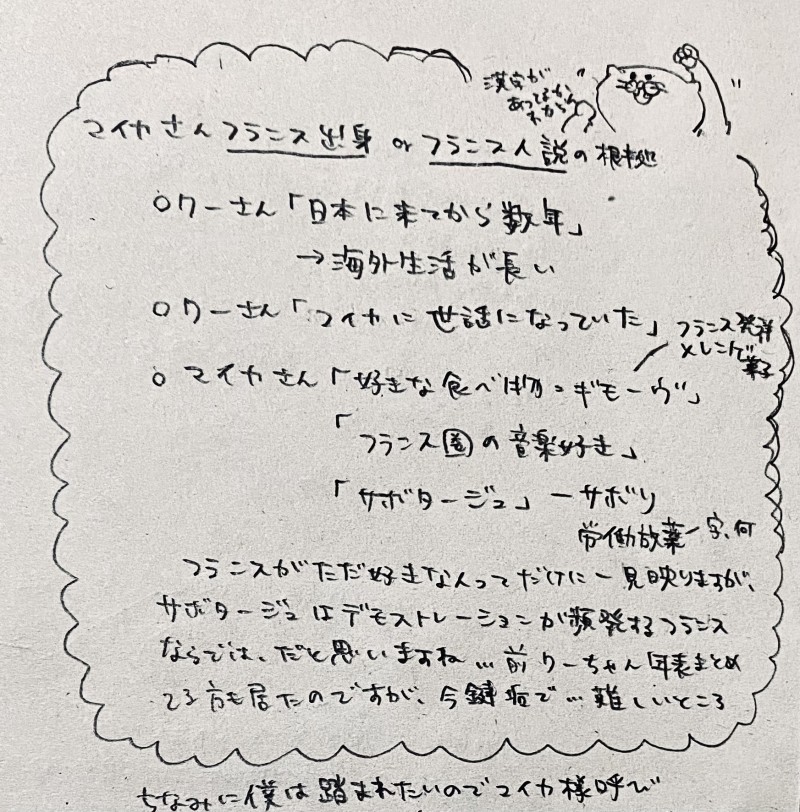 漢字が
あってるか
わからん
マイカさんフランス出身 or フランス人説の根拠
○クーさん「日本に来てから数年」
→海外生活が長い
○クーさん「マイカに世話になっていた」
フランス発祥
メレンゲ
菓子
○マイカさん「好きな食べ物=ギモーヴ」
「フランス圏の音楽好き」
「サボタージュ」ーサボり
労働放棄 字、何
フランスがただ好きな人ってだけに一見映りますが、
サボタージュはデモストレーションが頻発するフランス
ならでは、だと思いますね…前クーちゃん年表まとめ
てる方も居たのですが、今鍵垢で…難しいところ
ちなみに僕は踏まれたいのでマイカ様呼び